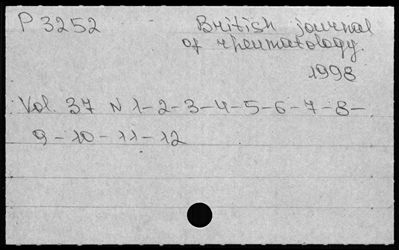 P 3252 British journal
of rheumatology.
1998
Vol. 37 N 1-2-3-4-5-6-7-8-
9-10-11-12